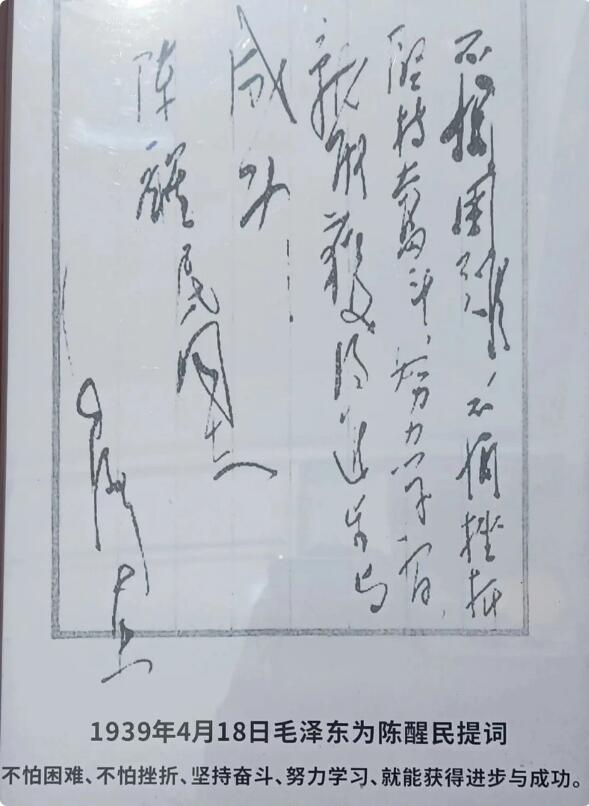 不怕困难,不怕挫折
坚持奋斗,努力学习,
就能获得进步与
成功!
陈醒民同志
毛泽东
1939年4月18日毛泽东为陈醒民提词
不怕困难、不怕挫折、坚持奋斗、努力学习、就能获得进步与成功。